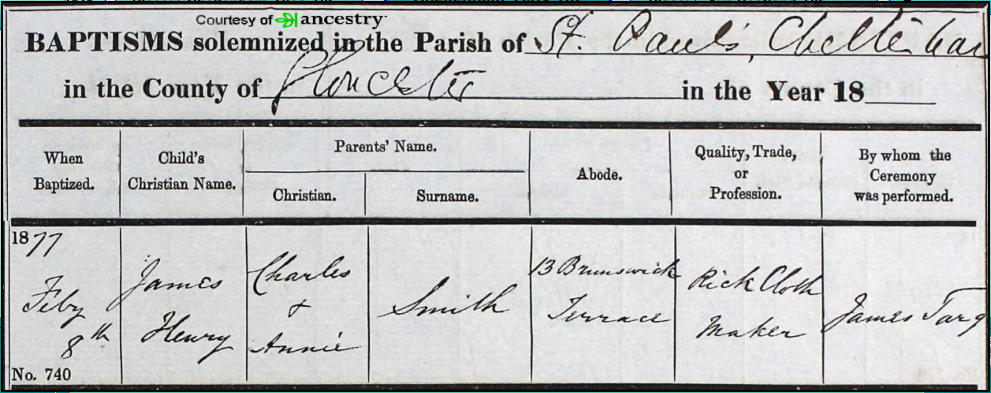 Courtesy of ancestry
BAPTISMS solemnized in the Parish of St. Paul's, Cheltenham
in the County of Gloucester in the Year 18
When Baptized.
Child's Christian Name.
Parents' Name.
Christian.
Surname.
Abode.
Quality, Trade, or Profession.
By whom the Ceremony was performed.
1877
Feby
8th
James
Henry
Charles
+
Annie
Smith
13 Brunswick
Terrace
Rick Cloth
Maker
James
No. 740